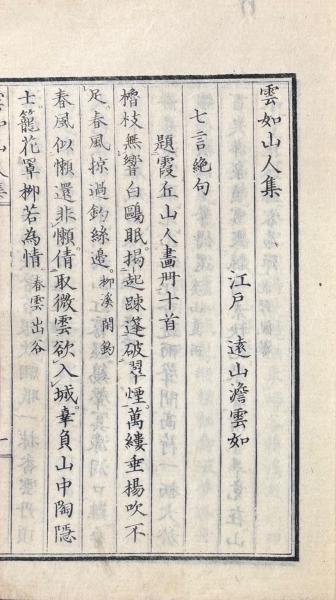 雲如山人集
江戸 遠山澹雲如
七言絶句
題霞丘山人畫冊十首
櫓枝無響白鷗眠揭起踈篷破翠煙萬縷垂楊吹不
足春風掠過釣絲邊 柳溪閒釣
春風似懶還非懶倩取微雲欲入城辜負山中陶隱
士籠花罩柳若為情 春雲出谷